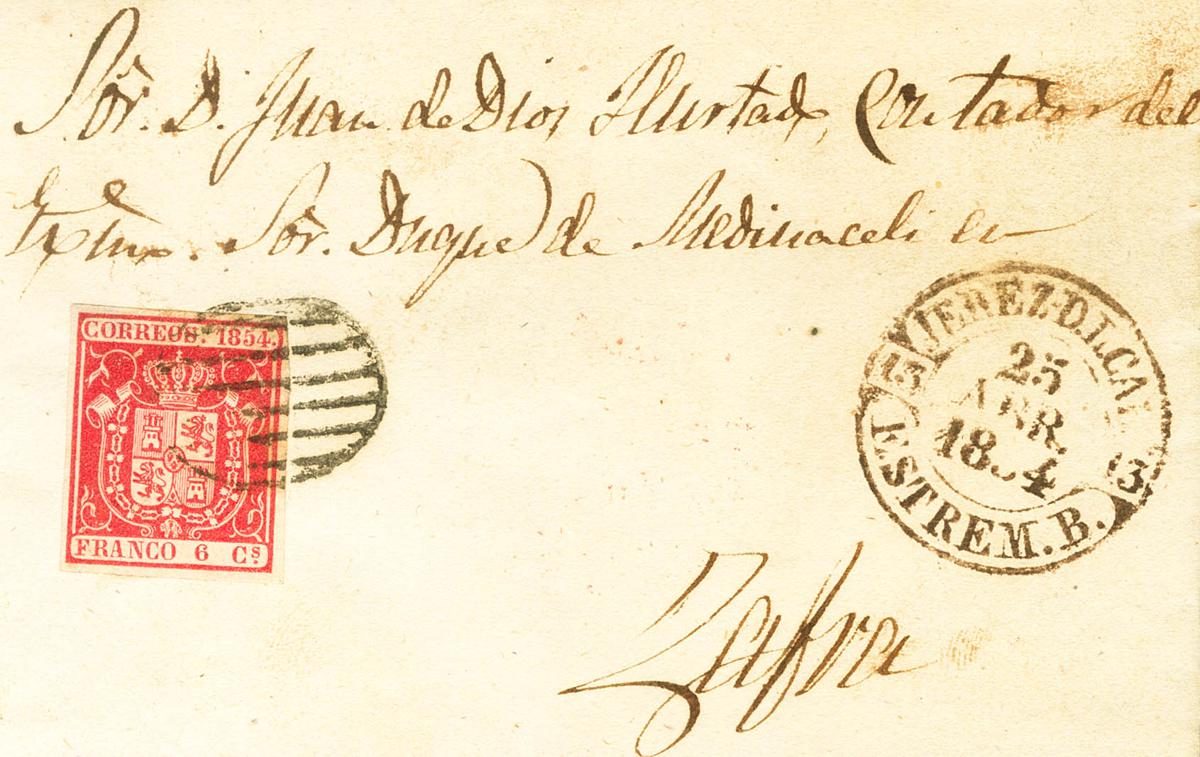 Sór. D. Juan de Dios Hurtado, Contador del
Exmo. Sór. Duque de Medinaceli en
CORREOS. 1854.
FRANCO 6 Cs.
JEREZ-D.L.CAB
25
ABR
1854
3
ESTREM. B.
Zafra